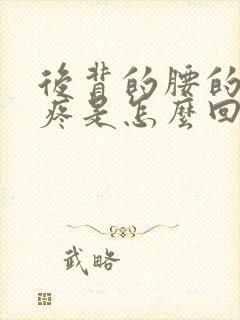 後背的腰的
疼是怎麼回
武略